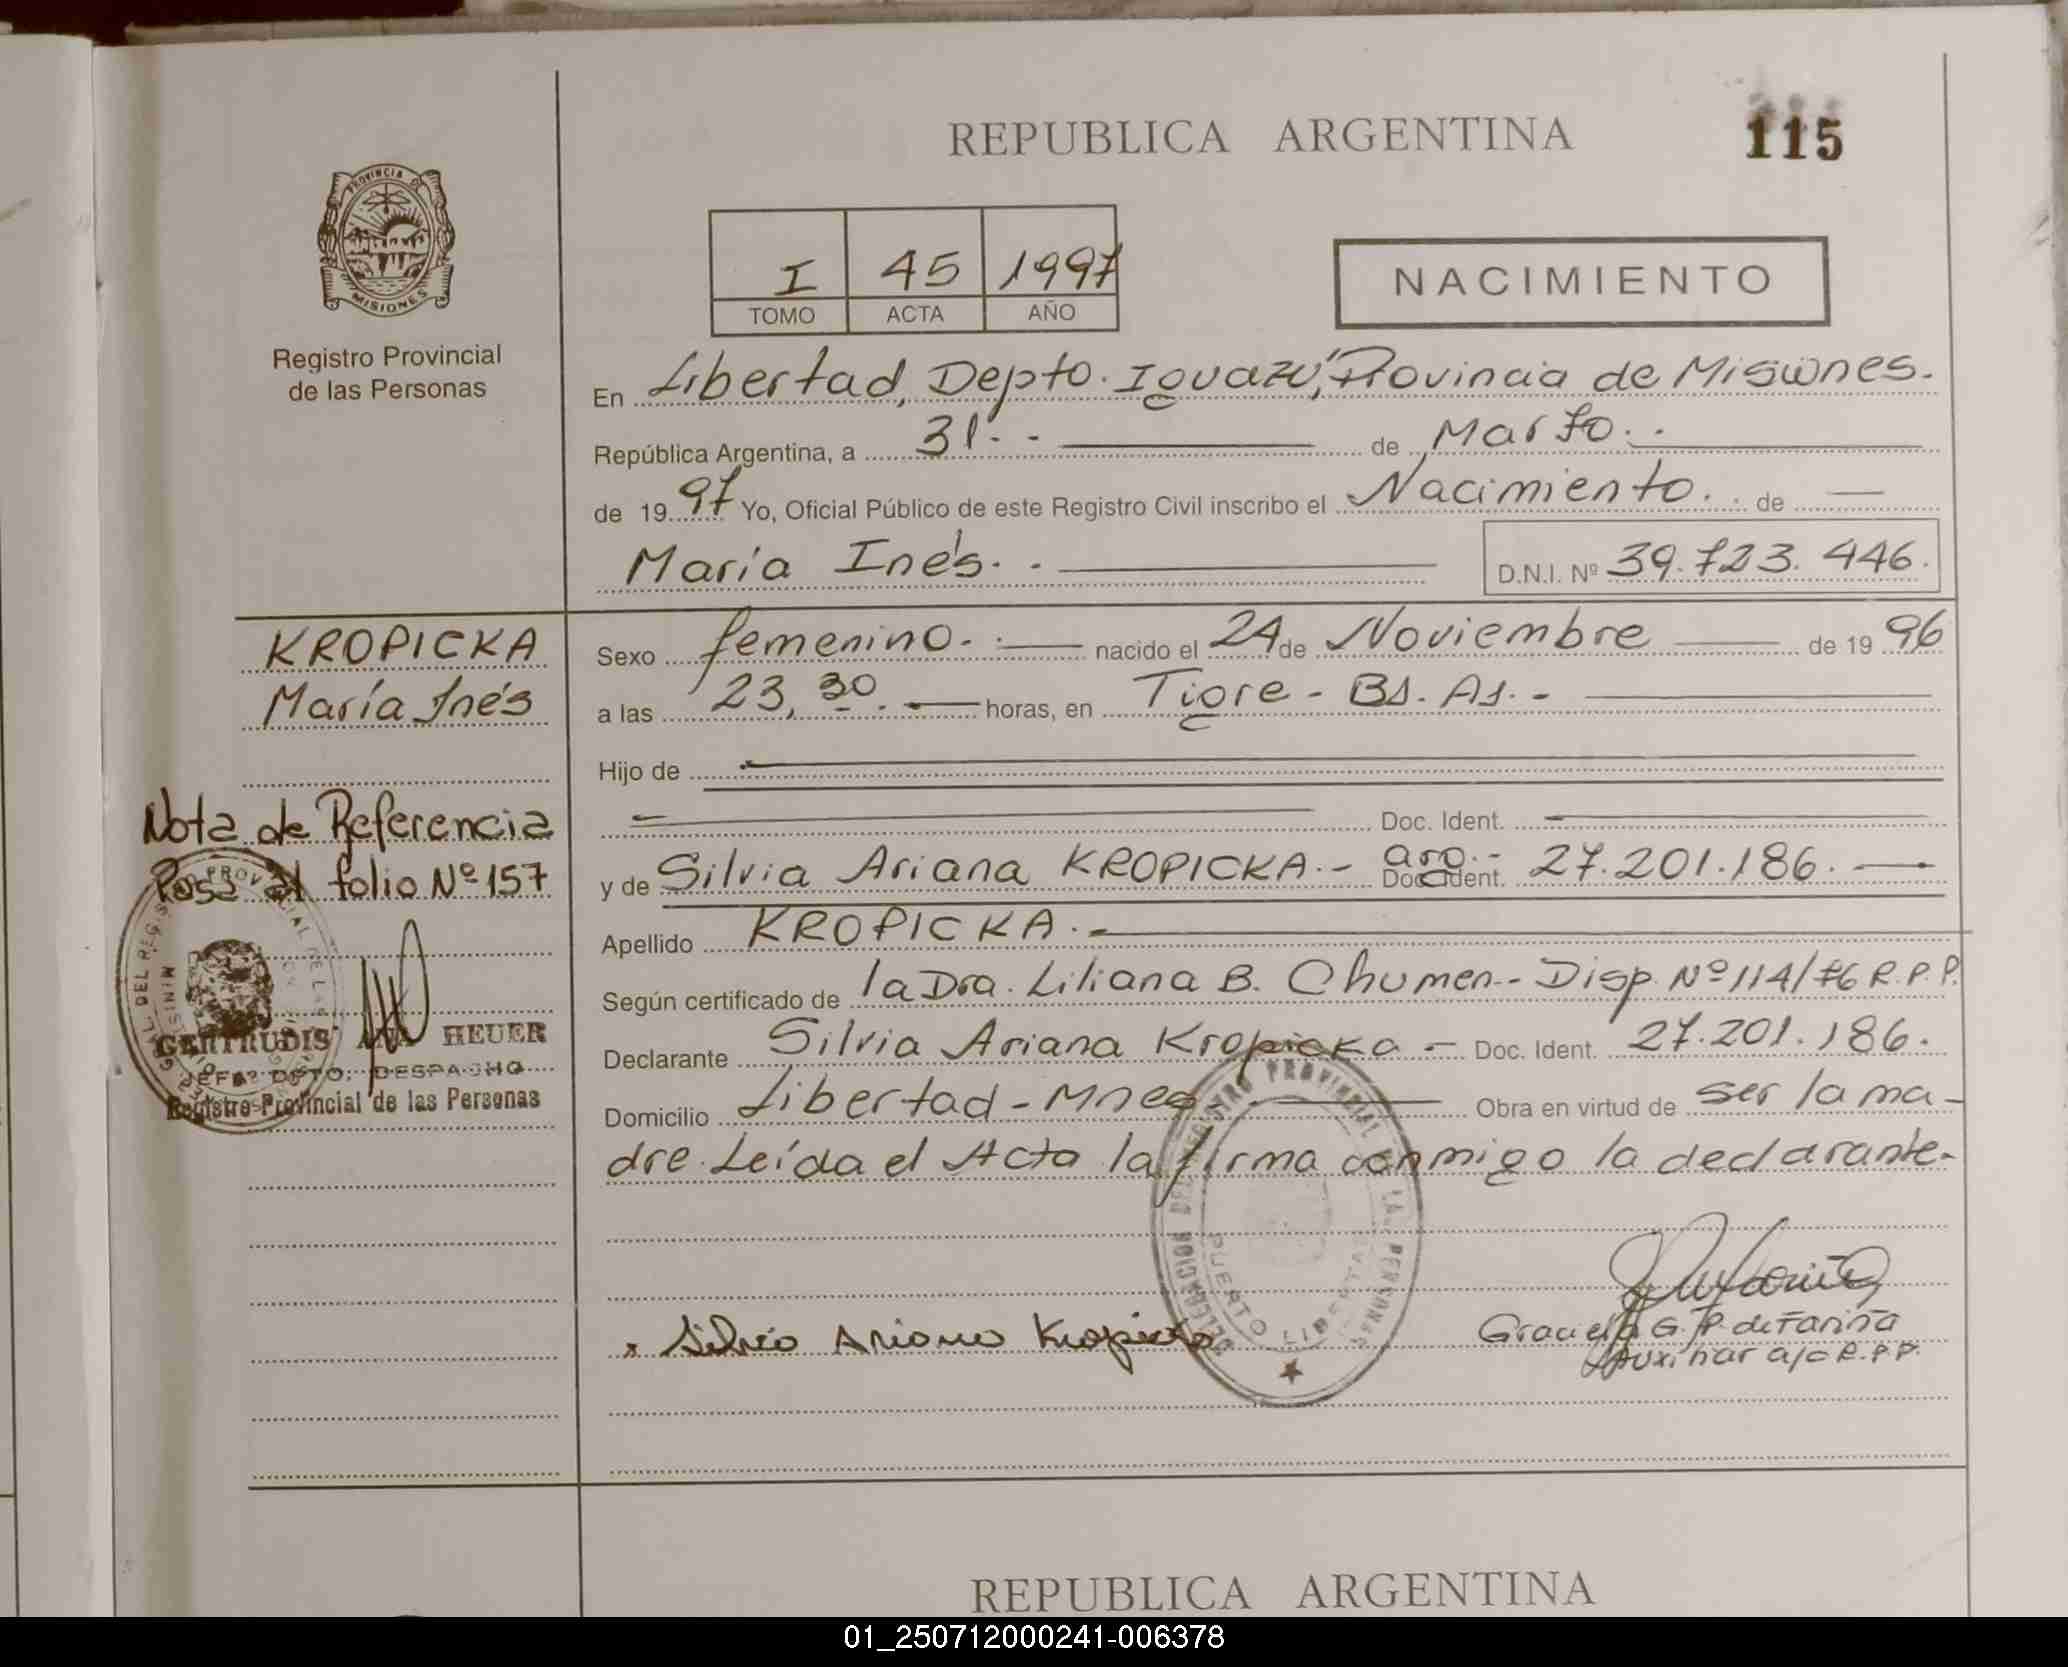 REPUBLICA ARGENTINA
115
PROVINCIA DE
MISIONES
Registro Provincial
de las Personas
I 45 1997
TOMO ACTA AÑO
NACIMIENTO
En Libertad, Depto. Iguazú, Provincia de Misiones.
República Argentina, a 31.- de Marzo.-
de 1997 Yo, Oficial Público de este Registro Civil inscribo el Nacimiento.. de —
María Inés.-
D.N.I. Nº 39.723.446.
KROPICKA
María Inés
Sexo femenino.- nacido el 24 de Noviembre de 1996
a las 23,30. horas, en Tigre - Bs. As.-
Hijo de
Doc. Ident.
y de Silvia Ariana KROPICKA.- arg.- Doc. Ident. 27.201.186.
Apellido KROPICKA.-
Según certificado de la Dra. Liliana B. Chumen.- Disp. Nº 114/76 R.P.P.
Declarante Silvia Ariana Kropicka - Doc. Ident. 27.201.186.
Domicilio Libertad - Mnes Obra en virtud de ser la ma-
dre. Leída el Acta la firma conmigo la declarante.
Nota de Referencia
Pasa al folio Nº 157
GERTRUDIS ANA HEUER
JEFA DPTO. DESPACHO
Registro Provincial de las Personas
DELEGACION DEL REGISTRO PROVINCIAL DE LAS PERSONAS
PUERTO LIBERTAD
x Silvia Ariana Kropicka
Graciela G. P. de Fariña
Auxiliar a/c R.P.P.
REPUBLICA ARGENTINA
01_250712000241-006378